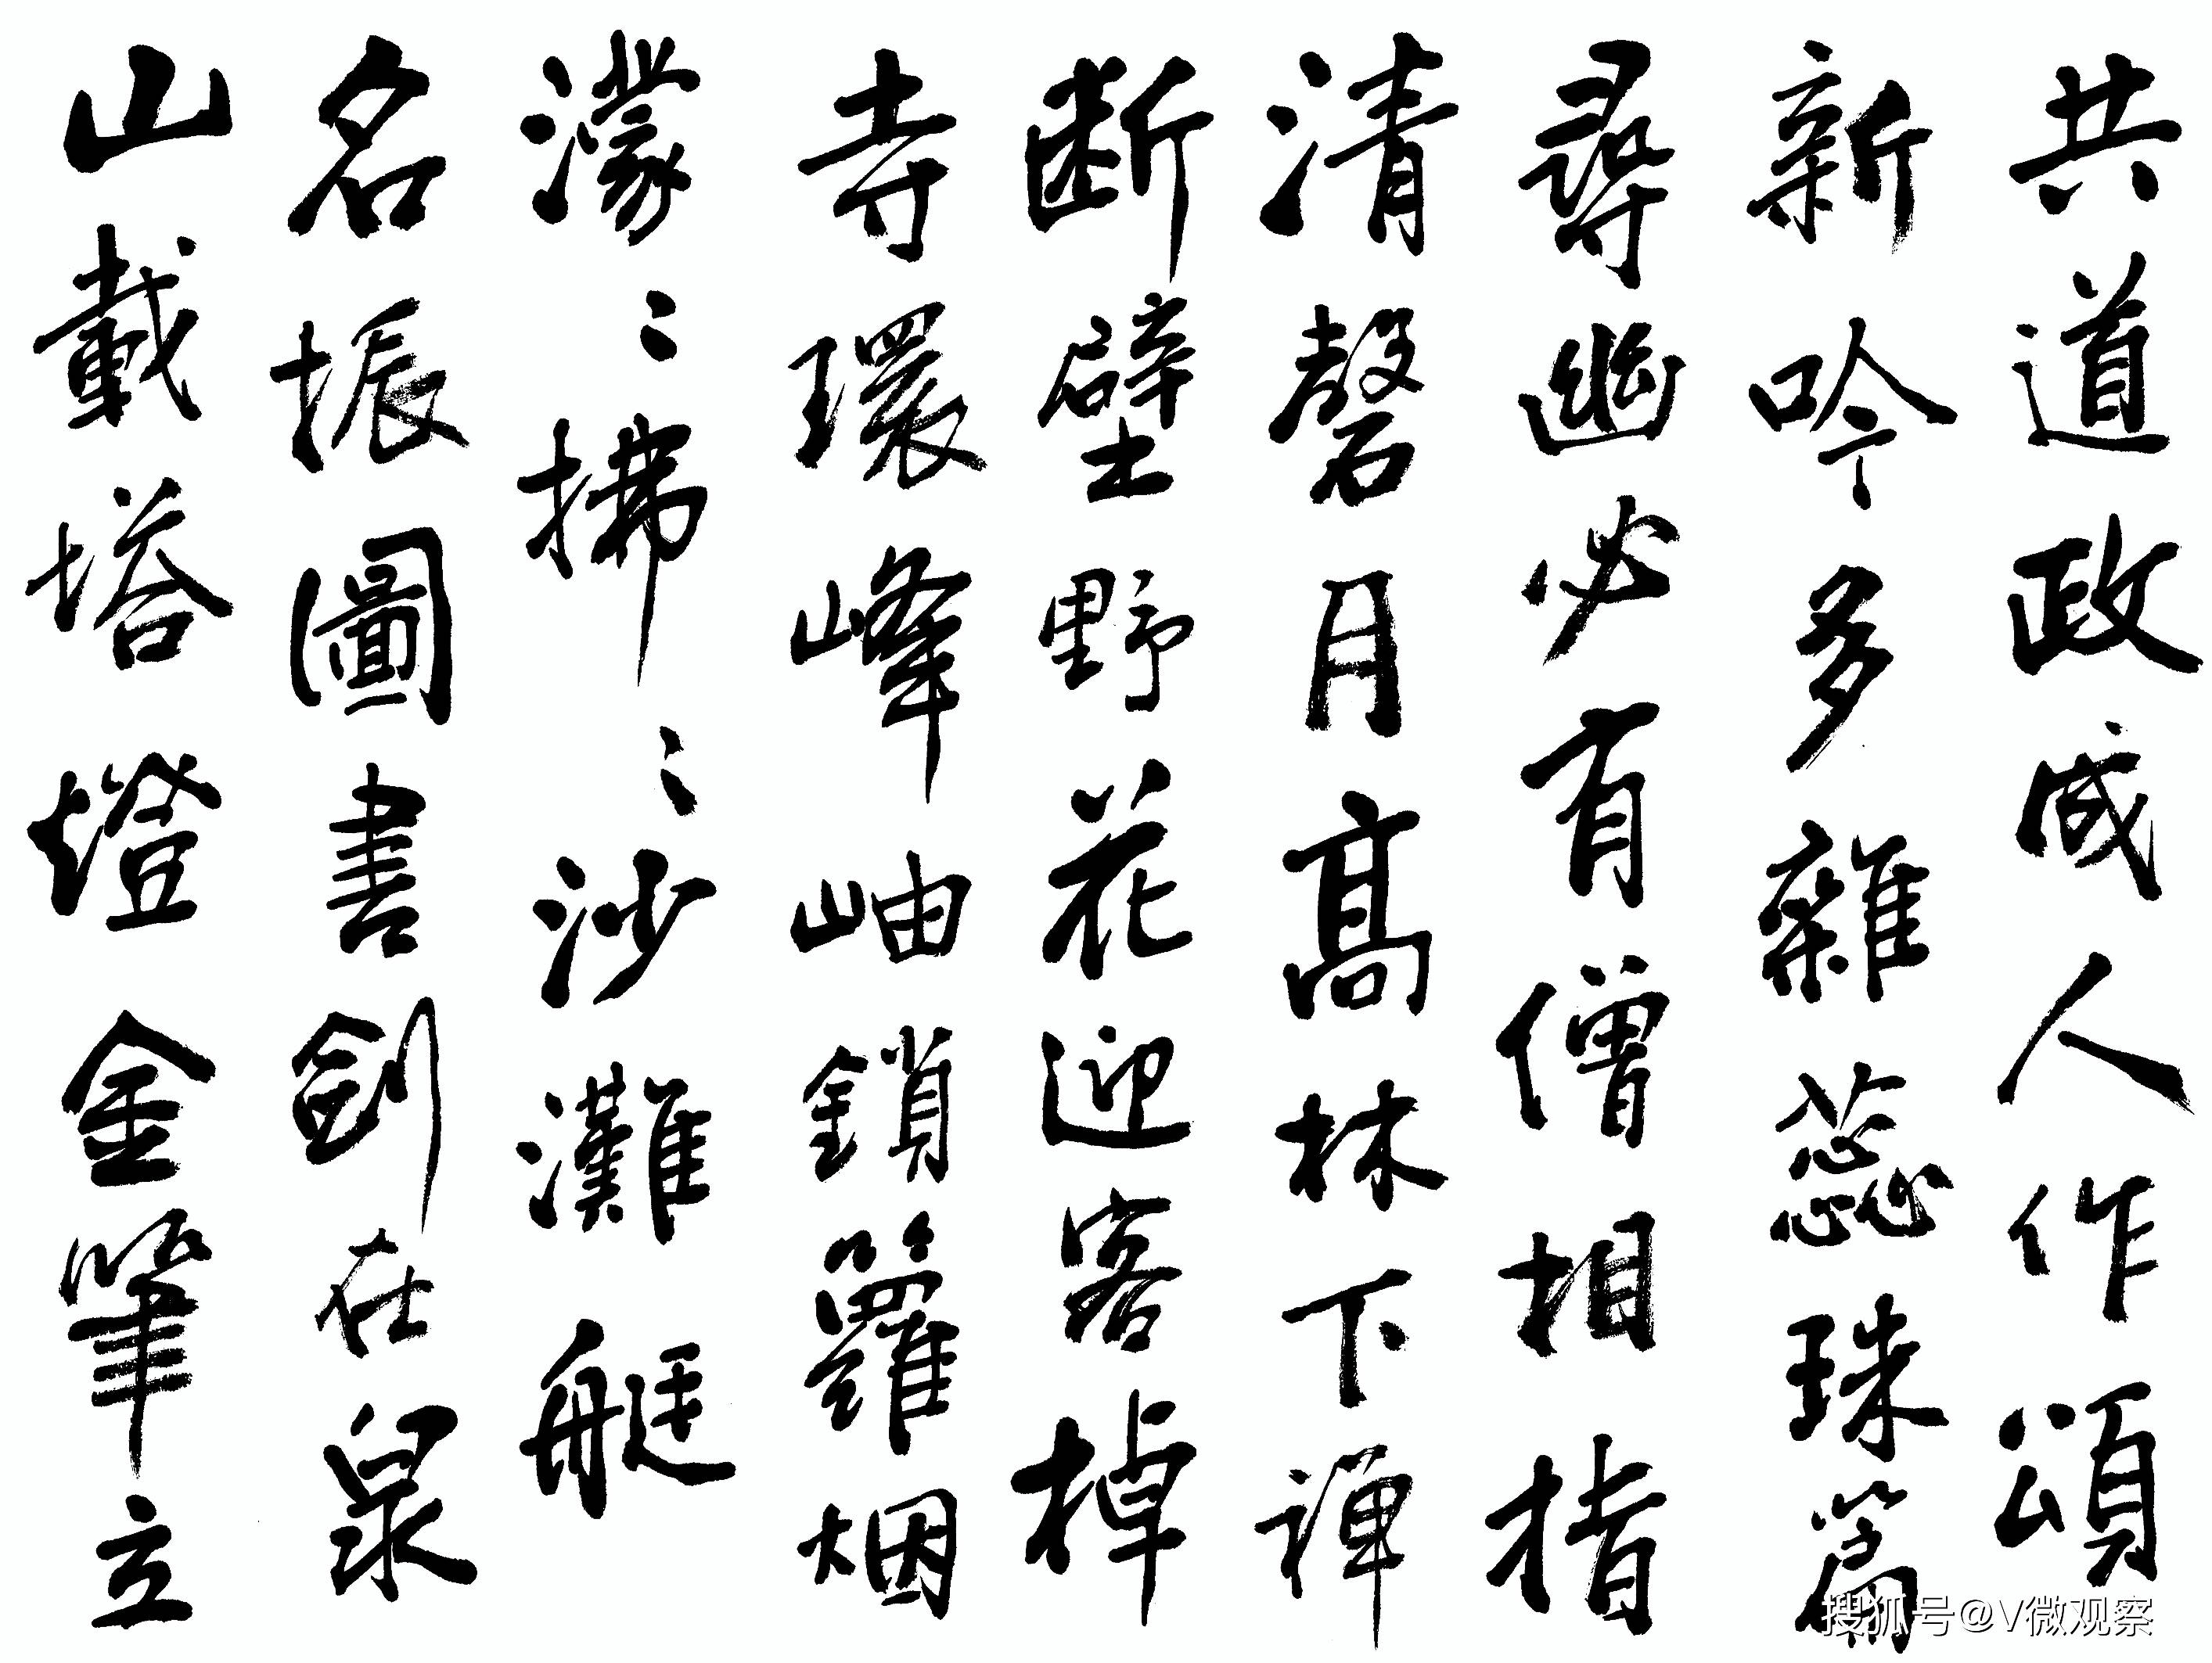 共道政成人作頌
新吟多雜蕊珠篇
尋幽必有僧相指
清磬月高林下禪
断壁野花迎客棹
寺環峰岫鎖籮烟
濛〻拂〻沙灘艇
名振圖書劍在泉
山戴塔燈金筆立
搜狐号@V微观察